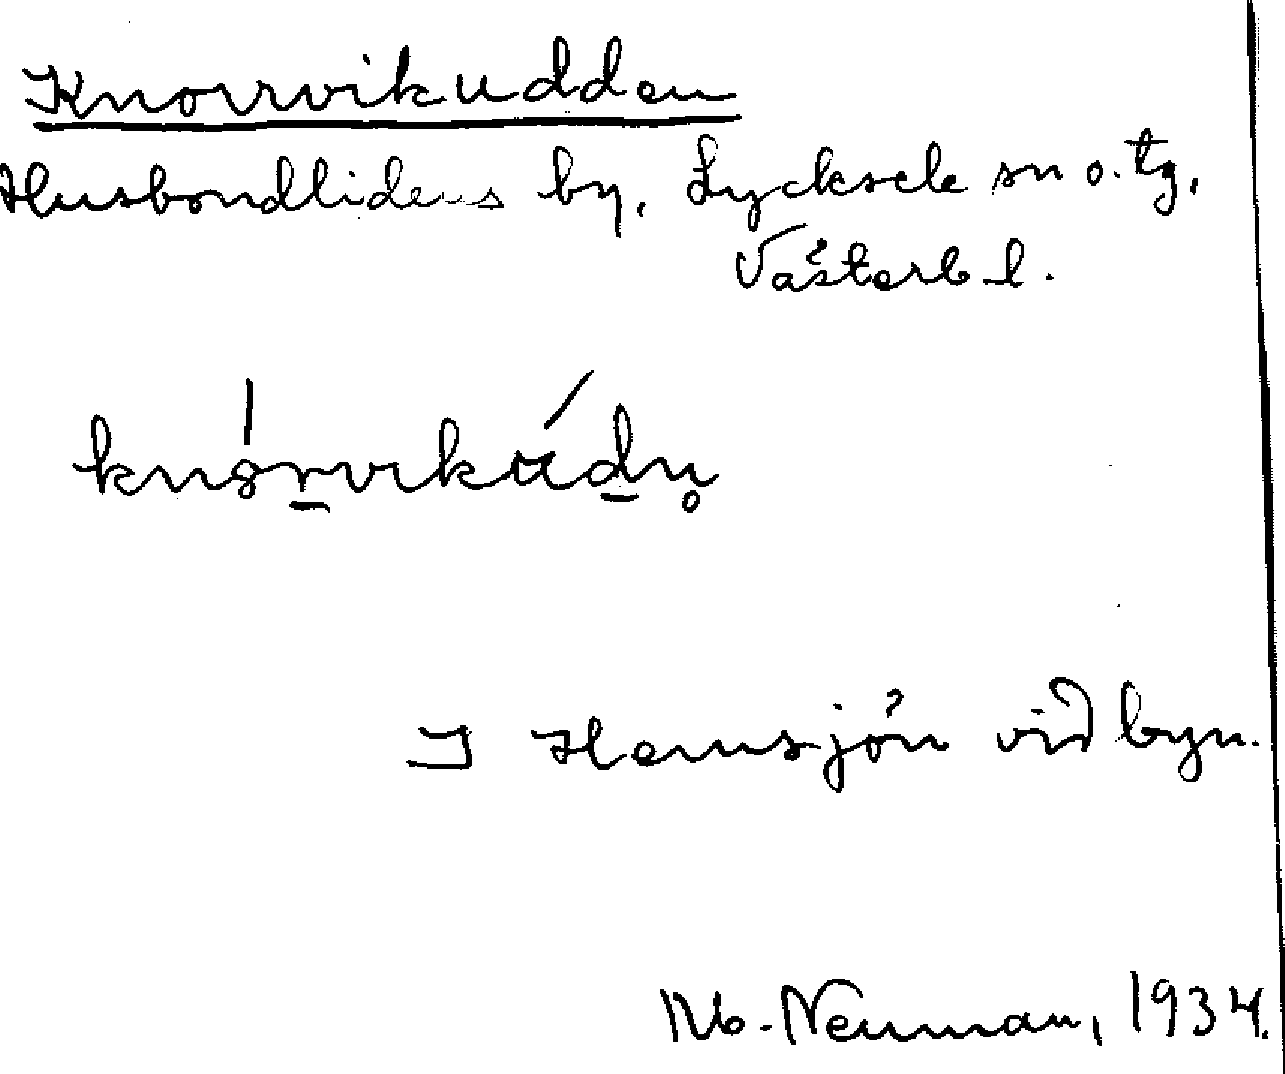 Knorrvikudden
Husbondlidens by, Lycksele sn o. tg,
Västerb l.
I Hemsjön vid byn.
Neuman, 1934.